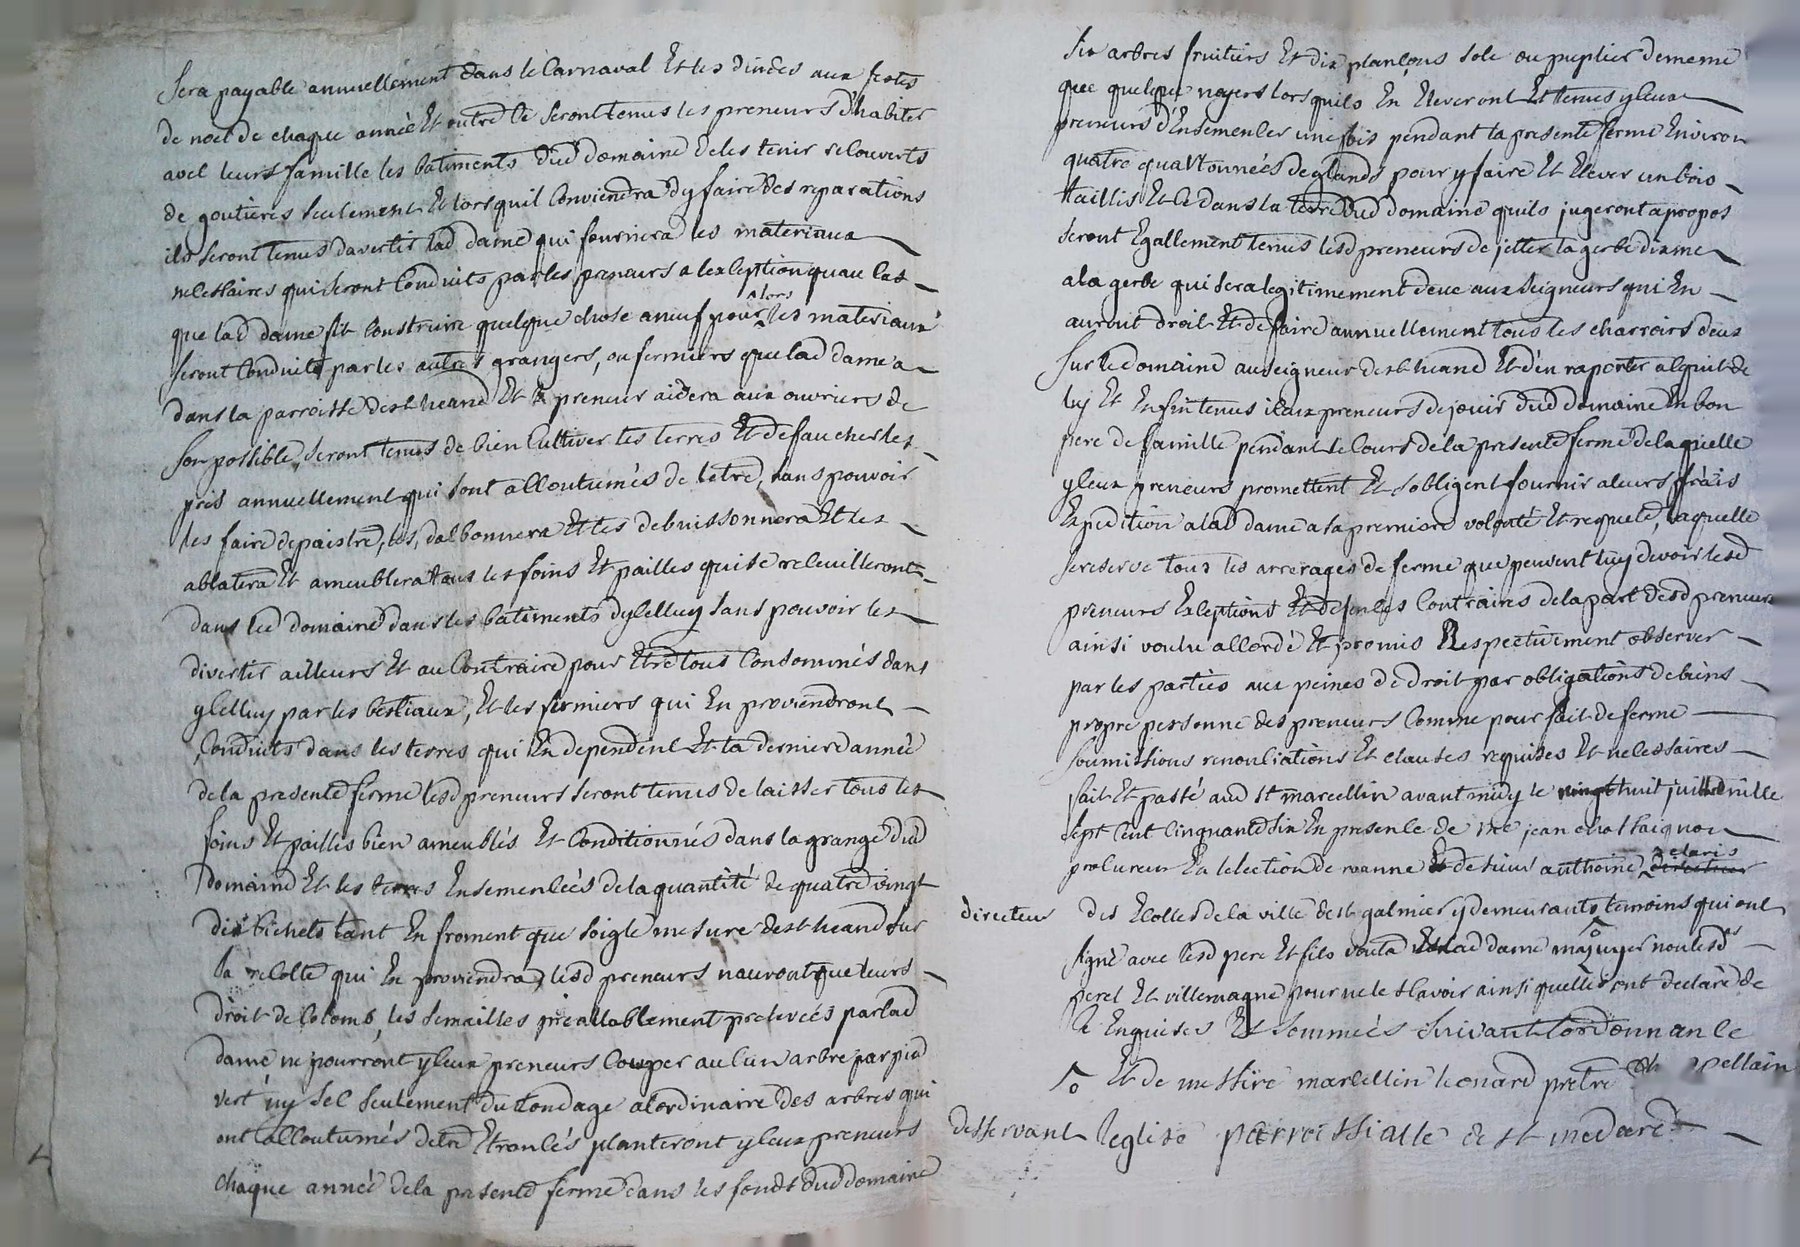 Sera payable annuellement dans le Carnaval Et les dindes aux festes
de noel de chaque année Et outre ce seront tenus les preneurs d'habiter
avec leurs famille les batiments dud domaine de les tenir recouverts
de goutieres seulement Et lorsquil Conviendra dy faire des reparations
ils seront tenus davertir lad dame qui fournira les materiaux
necessaires qui seront Conduits par les preneurs a lexception quau cas
que lad dame fit Construire quelque chose aneuf pour alors les materiaux
seront Conduits par les autres grangers, ou fermiers que lad dame a
dans la parroisse de st heand Et le preneur aidera aux ouvriers de
son possible, seront tenus de bien Cultiver les terres Et de faucher les
prés annuellement qui sont accoutumés de letre, sans pouvoir
les faire depaistre, les, dalbonnera Et les debuissonnera Et les
ablatera Et ameublera tous les foins Et pailles qui se receuilleront
dans led domaine dans les batiments dycelluy sans pouvoir les
divertir ailleurs Et au Contraire pour Etre tous Consommés dans
ycelluy par les bestiaux, Et les fumiers qui En proviendront
Conduits dans les terres qui En dependent Et la derniere année
de la presente ferme lesd preneurs seront tenus de laisser tous les
foins Et pailles bien ameublés Et Conditionnés dans la grange dud
domaine Et les terres Ensemencées de la quantité de quatre vingt
dix bichets tant En froment que soigle mesure de st heand sur
la recolte qui En proviendra, lesd preneurs nauront que leurs
droit de Colons, les semailles préallablement prelevées par lad
dame ne pourront yceux preneurs Couper aucun arbre par pied
vert ny sec seulement du tondage alordinaire des arbres qui
ont accoutumés detre Etronsés planteront yceux preneurs
chaque année de la presente ferme dans les fonds dud domaine
Six arbres fruitiers Et dix plançons sole ou puplier dememe
que quelque noyers lorsquils En Eleveront Et tenus yceux
preneurs d'Ensemencer une fois pendant la presente ferme Environ
quatre quartonnées de glands pour y faire Et Elever un bois
taillis Et ce dans la terre dud domaine quils jugeront apropos
seront Egallement tenus lesd preneurs de jetter la gerbe dixme
a la gerbe qui sera legitimement deue aux seigneurs qui En
auront droit Et de faire annuellement tous les charrois deux
sur le domaine au seigneur de st heand Et d'en raporter aquit de
luy Et Enfin tenus iceux preneurs de jouir dud domaine En bon
pere de famille pendant le Cours de la presente ferme de laquelle
yceux preneurs promettent Et s'obligent fournir aleurs frais
Expedition alad dame a sa premiere volonté Et requete, laquelle
se reserve tous les arrerages de ferme que peuvent luy devoir lesd
preneurs Exceptions Et defences Contraires de la part desd preneurs
ainsi voulu accordé Et promis Respectivement observer
par les parties aux peines de droit par obligations de biens
propre personne des preneurs Comme pour fait de ferme
soumissions renonciations Et clauses requises Et necessaires
fait Et passé aud st marcellin avant midy le vingt huit juillet mille
sept Cent Cinquante six En presence de me jean chassaignon
procureur En lelection de roanne de sieur anthoine
directeur des Ecolles de la ville de st galmier y demeurants temoins qui ont
signé avec lesd pere Et fils lad dame non lesd
peret Et villemagne pour ne le scavoir ainsi quelles ont declaré de
ce Enquises Et sommées suivant lordonnance
Et de messire marcellin leonard pretre
desservant leglise parroissialle de st medard